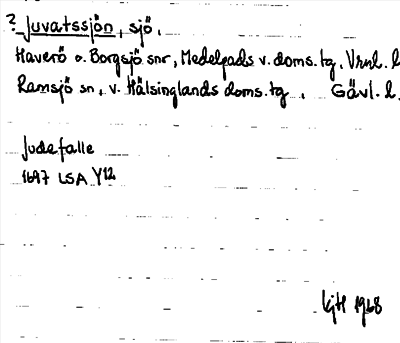 ? Juvatssjön, sjö.
Haverö o. Borgsjö snr, Medelpads v. doms.tg. Vrnl. l
Ramsjö sn, v. Hälsinglands doms.tg. Gävl. l.
Judefalle
1697 LSA Y12
1968